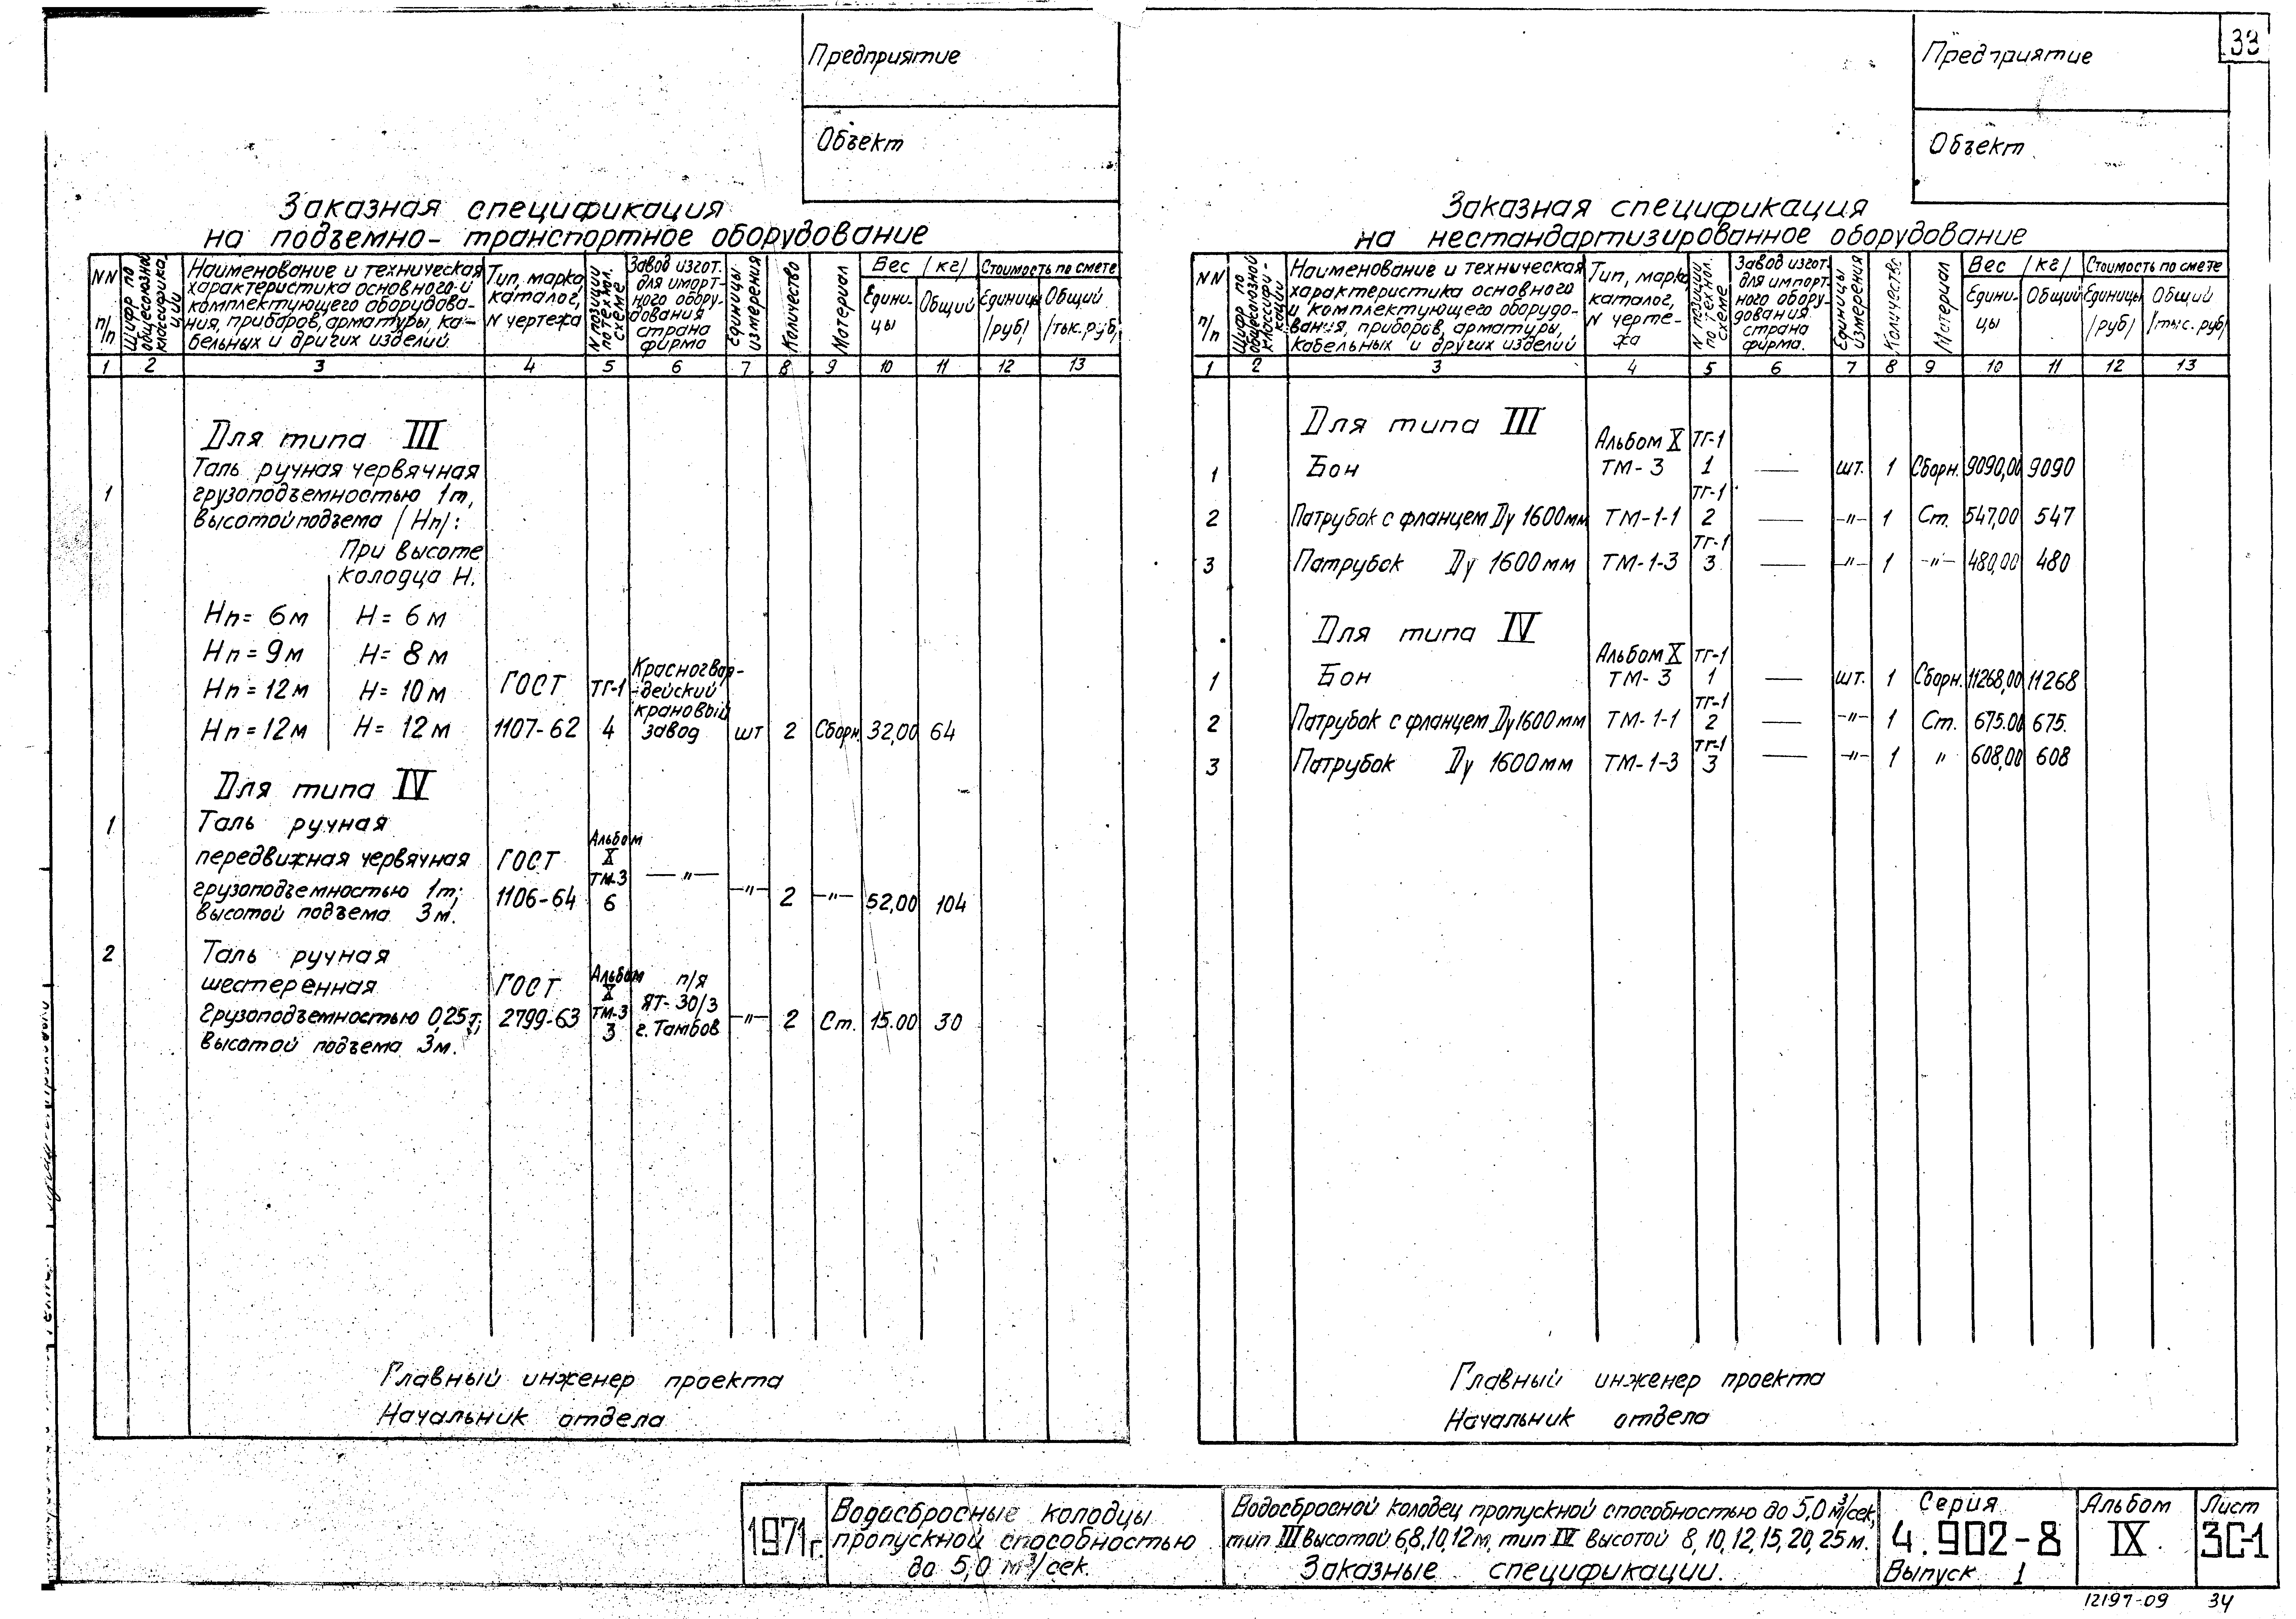 33
Предприятие
Объект
Заказная спецификация
на подъемно-транспортное оборудование
NN п/п
Шифр по общесоюзной классификации
Наименование и техническая
характеристика основного и
комплектующего оборудова-
ния, приборов, арматуры, ка-
бельных и других изделий
Тип, марка,
каталог,
N чертежа
N позиции по техн. схеме
Завод изгот.
для импорт-
ного обору-
дования
страна
фирма
Единицы измерения
Количество
Материал
Вес /кг/
Едини-
цы
Общий
Стоимость по смете
Единицы
/руб/
Общий
/тыс.руб/
1 2 3 4 5 6 7 8 9 10 11 12 13
Для типа III
1 Таль ручная червячная
грузоподъемностью 1т,
высотой подъема /Нп/:
При высоте
колодца Н.
Нп= 6м Н= 6м
Нп=9м Н= 8м
Нп=12м Н= 10м
Нп=12м Н= 12м
ГОСТ
1107-62
ТГ-1
4
Красногвар-
дейский
крановый
завод
шт 2 Сборн. 32,00 64
Для типа IV
1 Таль ручная
передвижная червячная
грузоподъемностью 1т;
высотой подъема 3м.
ГОСТ
1106-64
Альбом
X
ТМ-3
6
—〃— —〃— 2 —〃— 52,00 104
2 Таль ручная
шестеренная
грузоподъемностью 0,25т;
высотой подъема 3м.
ГОСТ
2799-63
Альбом
X
ТМ-3
3
п/я
ЯТ-30/3
г. Тамбов
—〃— 2 Ст. 15.00 30
Главный инженер проекта
Начальник отдела
Предприятие
Объект
Заказная спецификация
на нестандартизированное оборудование
NN п/п
Шифр по общесоюзной классифи-кации
Наименование и техническая
характеристика основного
и комплектующего оборудо-
вания, приборов, арматуры,
кабельных и других изделий
Тип, марка,
каталог,
N черте-
жа
N позиции по технол. схеме
Завод изгот.
для импорт-
ного обору-
дования
страна
фирма.
Единицы измерения
Количество
Материал
Вес /кг/
Едини-
цы
Общий
Стоимость по смете
Единицы
/руб/
Общий
/тыс. руб/
1 2 3 4 5 6 7 8 9 10 11 12 13
Для типа III
Альбом X ТГ-1
1 Бон ТМ-3 1 — шт. 1 Сборн. 9090,00 9090
ТГ-1
2 Патрубок с фланцем Dу 1600мм ТМ-1-1 2 — —〃— 1 Ст. 547,00 547
ТГ-1
3 Патрубок Dу 1600мм ТМ-1-3 3 — —〃— 1 —〃— 480,00 480
Для типа IV
Альбом X ТГ-1
1 Бон ТМ-3 1 — шт. 1 Сборн. 11268,00 11268
ТГ-1
2 Патрубок с фланцем Dу1600мм ТМ-1-1 2 — —〃— 1 Ст. 675.00 675.
ТГ-1
3 Патрубок Dу 1600мм ТМ-1-3 3 — —〃— 1 〃 608,00 608
Главный инженер проекта
Начальник отдела
1971г.
Водосбросные колодцы
пропускной способностью
до 5,0 м³/сек.
Водосбросной колодец пропускной способностью до 5,0 м³/сек,
тип III высотой 6,8,10,12м, тип IV высотой 8,10,12,15,20,25м.
Заказные спецификации.
Серия
4.902-8
Выпуск 1
Альбом
IX
Лист
ЗС-1
12197-09 34